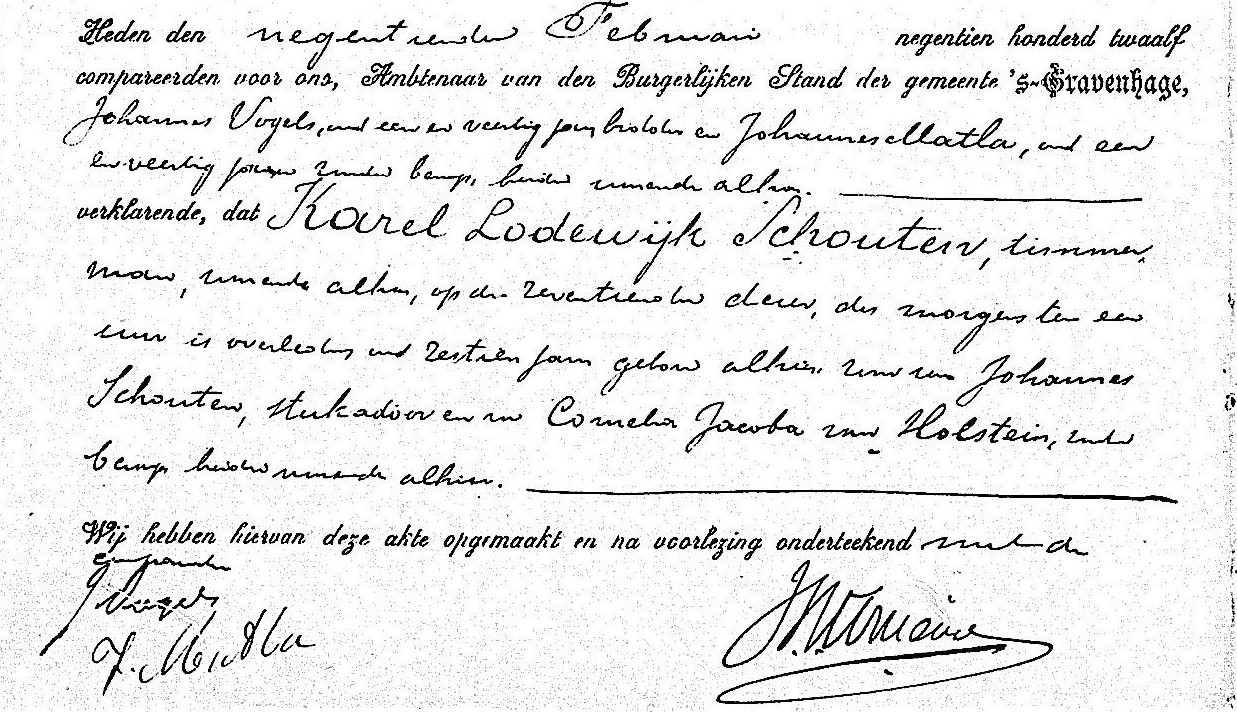 Heden den negentienden Februari negentien honderd twaalf
compareerden voor ons, Ambtenaar van den Burgerlijken Stand der gemeente 's-Gravenhage,
Johannes Vogels, oud een en veertig jaren, bidder en Johannes Matla, oud een
en veertig jaren zonder beroep, beiden wonende alhier.
verklarende, dat Karel Lodewijk Schouten, timmer-
man, wonende alhier, op den zeventienden dezer, des morgens ten een
ure is overleden oud zestien jaren geboren alhier, zoon van Johannes
Schouten, stukadoor en van Cornelia Jacoba van Holstein, zonder
beroep beiden wonende alhier.
Wij hebben hiervan deze akte opgemaakt en na voorlezing onderteekend met de
comparanten
J Vogels
J. Matla